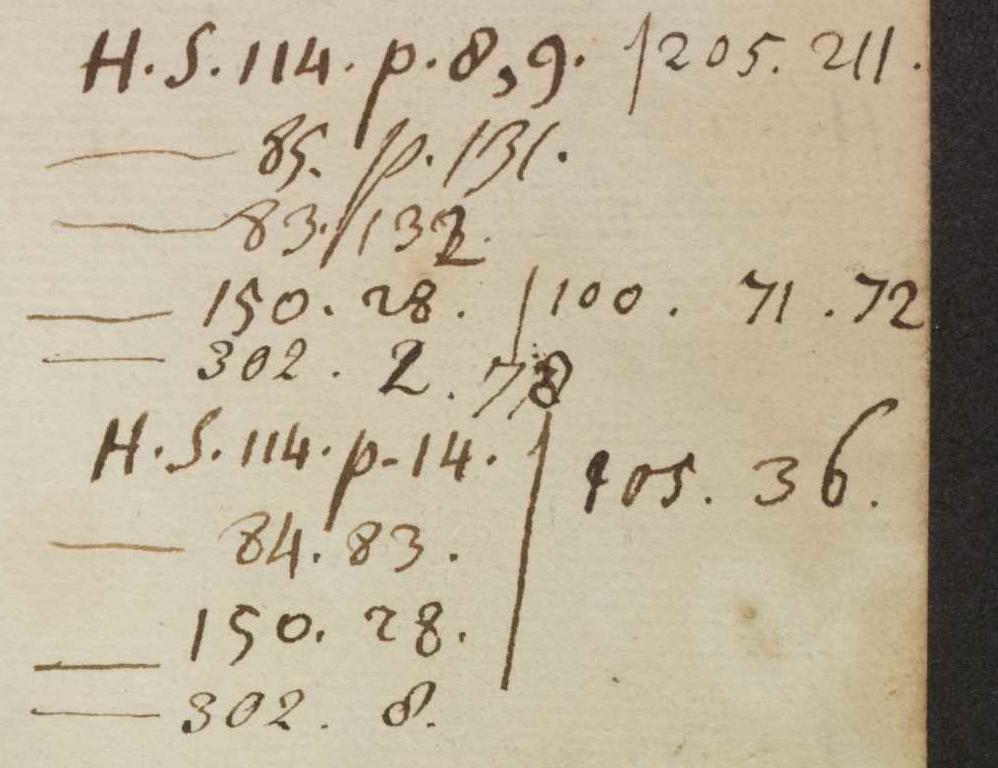 H.S.114. p. 8, 9. | 205. 211.
— 85. p. 131.
— 83. / 132.
— 150. 28. | 100. 71. 72
— 302. 2. 78
H.S.114. p. 14. | 105. 36.
— 84. 83.
— 150. 28.
— 302. 8.